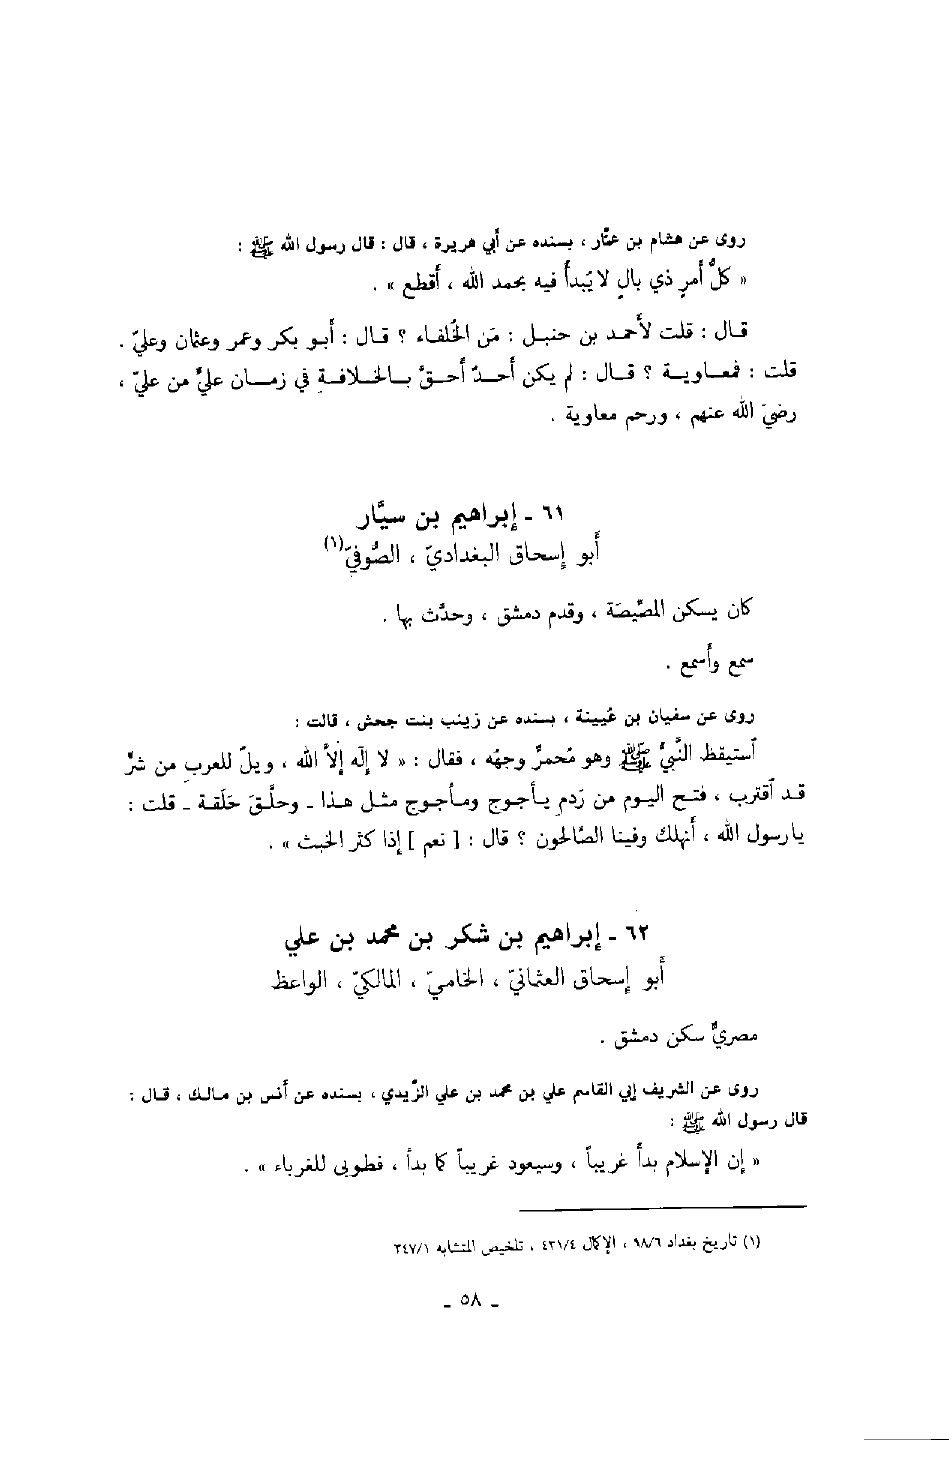 روى عن هشام بن عمّار ، بسنده عن أبي هريرة ، قال : قال رسول الله ﷺ :
« كلُّ أمرٍ ذي بالٍ لا يُبدأ فيه بحمد الله ، أقطع » .
قال : قلت لأحمد بن حنبل : مَن الخُلفاء ؟ قال : أبو بكر وعمر وعثمان وعليّ .
قلت : فمعاوية ؟ قال : لم يكن أحدٌ أحقَّ بالخلافةِ في زمان عليٍّ من عليّ ،
رضيَ الله عنهم ، ورحم معاوية .
٦١ - إبراهيم بن سيَّار
أبو إسحاق البغداديّ ، الصُّوفيّ(١)
كان يسكن المصِّيصَة ، وقدم دمشق ، وحدَّث بها .
سمع وأسمع .
روى عن سفيان بن عُيينة ، بسنده عن زينب بنت جحش ، قالت :
آستيقظ النَّبيُّ ﷺ وهو مُحمرٌّ وجهُه ، فقال : « لا إله إلاّ الله ، ويلٌ للعربِ من شرٍّ
قد آقترب ، فتح اليوم من رَدمِ يأجوج ومأجوج مثل هذا ـ وحلَّقَ حَلَقة ـ قلت :
يا رسول الله ، أنهلك وفينا الصَّالحون ؟ قال : [ نعم ] إذا كثر الخبث » .
٦٢ - إبراهيم بن شكر بن محمد بن علي
أبو إسحاق العثمانيّ ، الخاميّ ، المالكيّ ، الواعظ
مصريٌّ سكن دمشق .
روى عن الشريف إبي القاسم علي بن محمد بن علي الزَّيدي ، بسنده عن أنس بن مالك ، قال :
قال رسول الله ﷺ :
« إن الإسلام بدأ غريباً ، وسيعود غريباً كما بدأ ، فطوبى للغرباء » .
(١) تاريخ بغداد ٩٨/٦ ، الإكمال ٤٣١/٤ ، تلخيص المتشابه ٣٤٧/١
ـ ٥٨ ـ